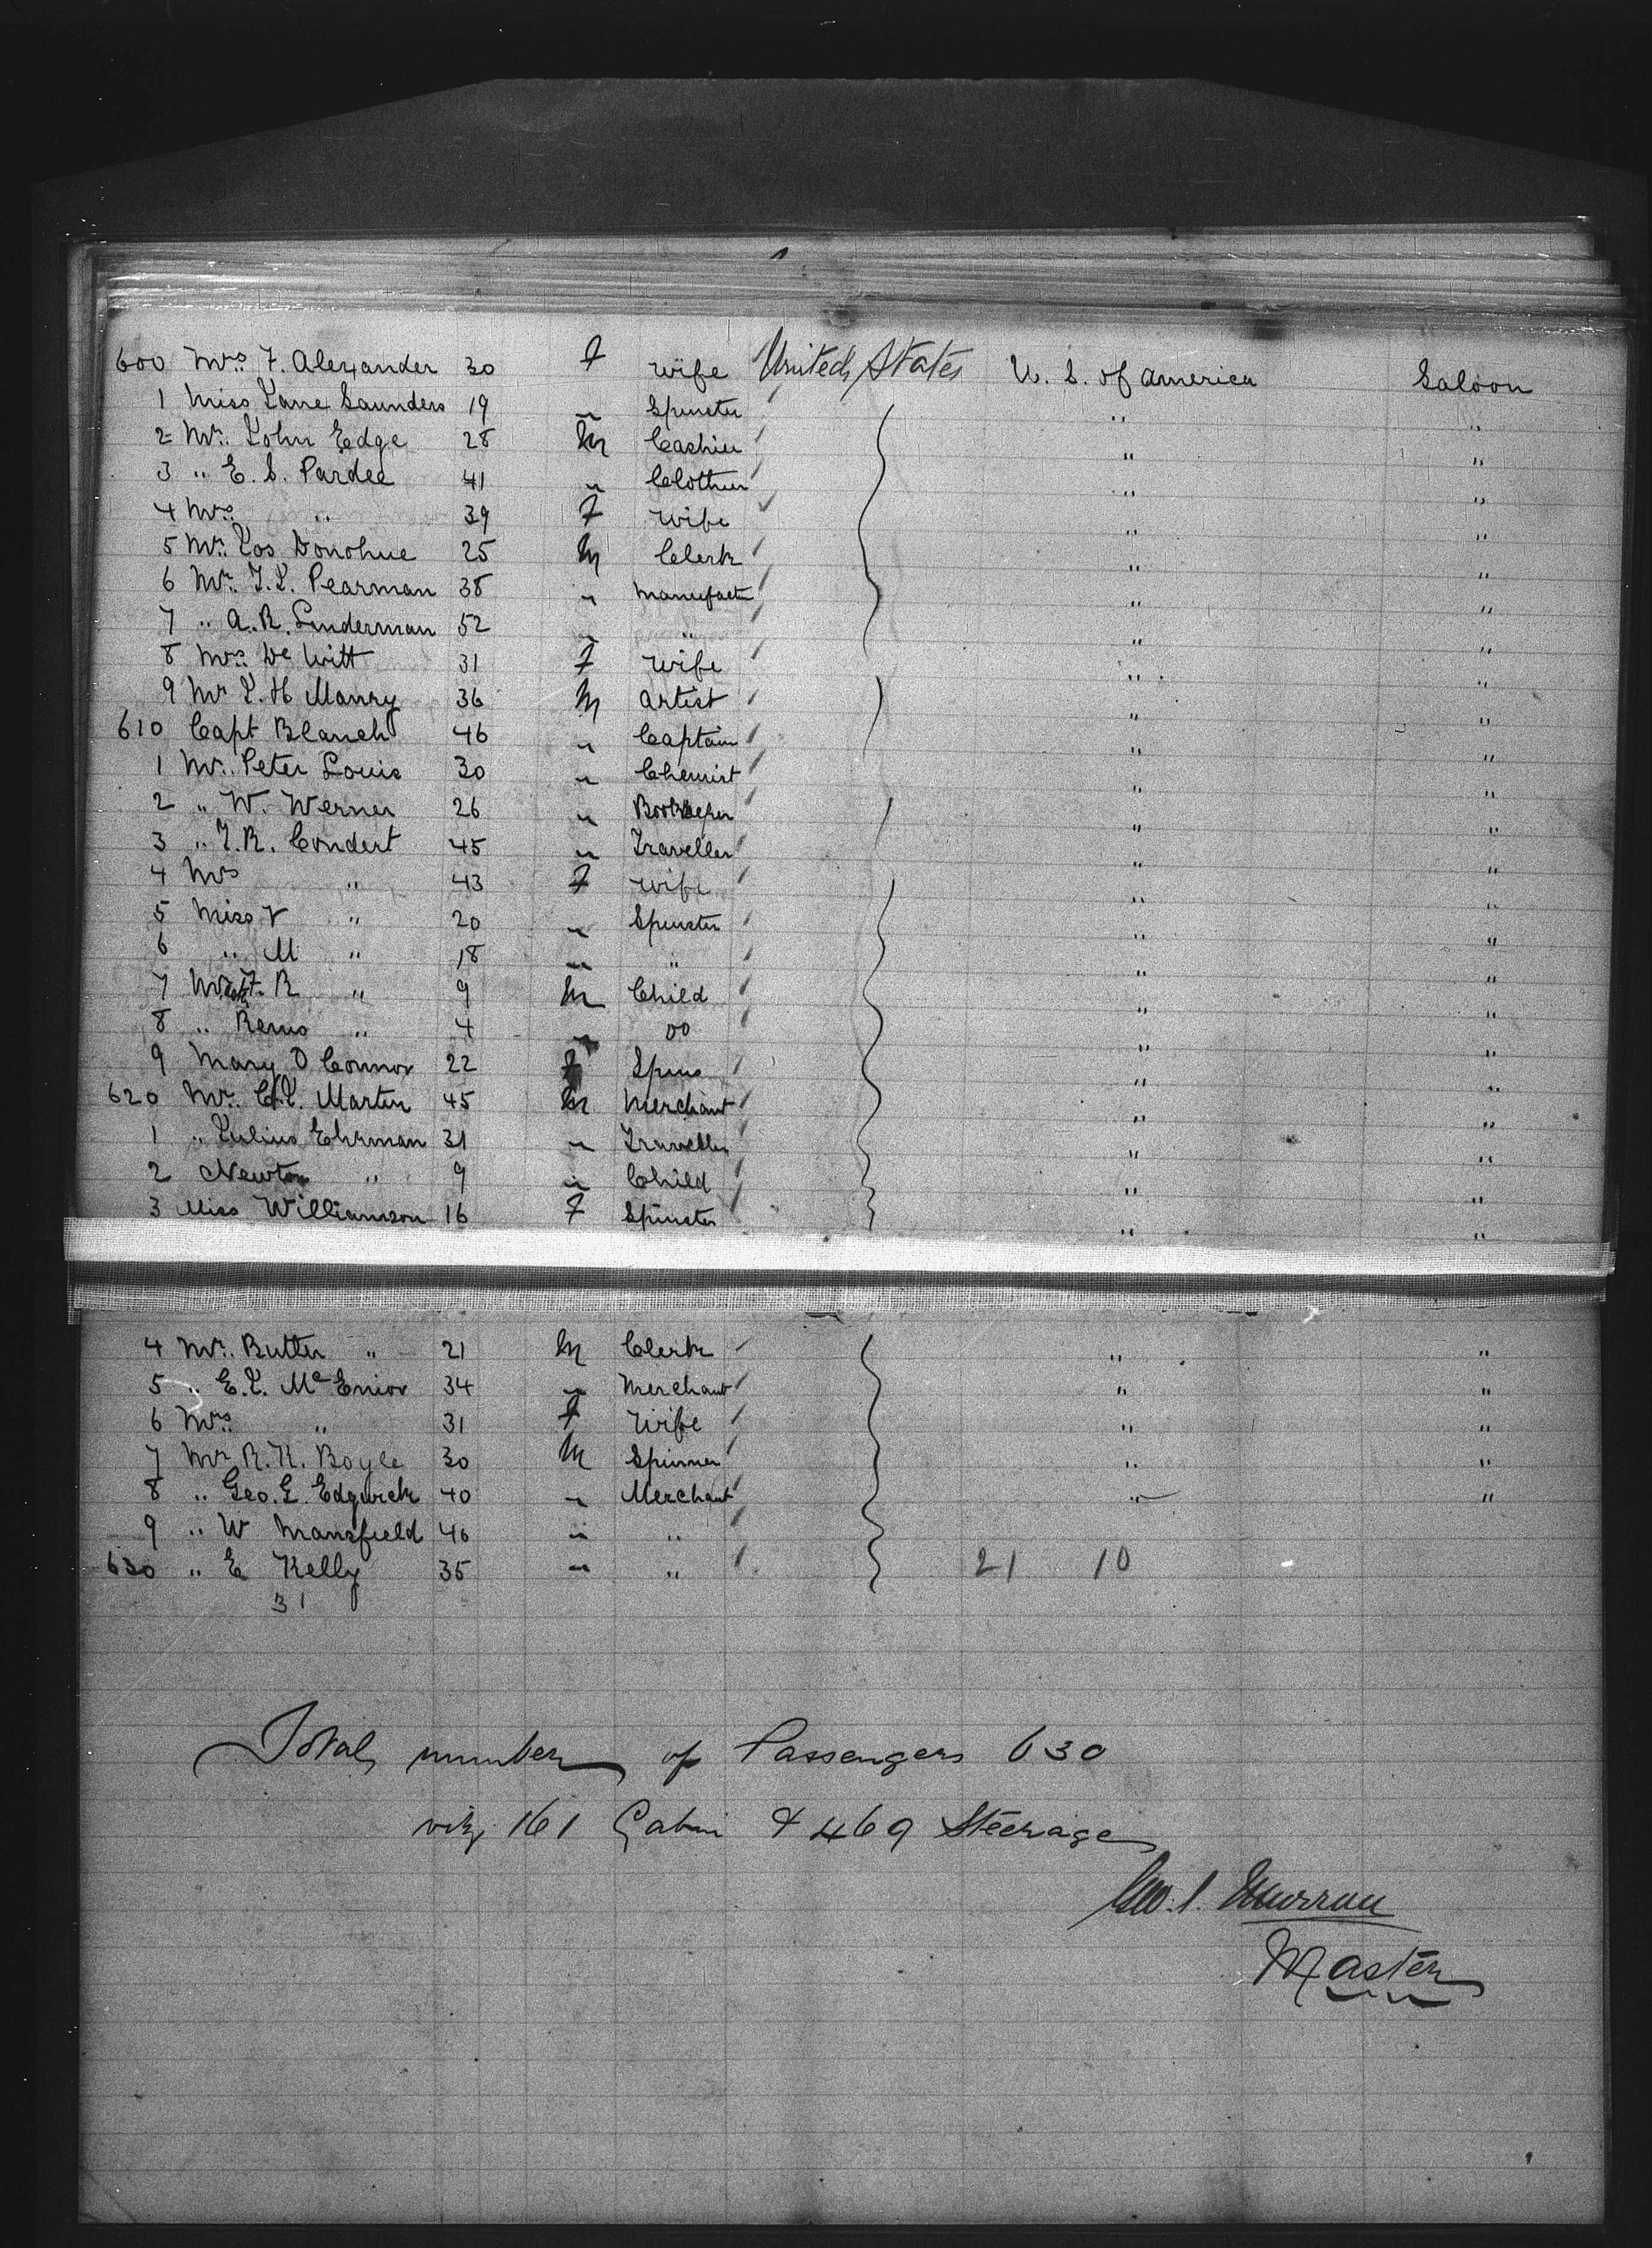 600 Mrs. F. Alexander 30 F Wife United States U. S. of America Saloon
1 Miss Jane Saunders 19 " Spinster " "
2 Mr. John Edge 28 M Cashier " "
3 " E. S. Pardee 41 " Clothier " "
4 Mrs. " 39 F Wife " "
5 Mr. Jos Donohue 25 M Clerk " "
6 Mr. J. J. Pearman 38 " Manufactr " "
7 " A. R. Linderman 52 " " " "
8 Mrs. De Witt 31 F Wife " "
9 Mr J. H Manry 36 M Artist " "
610 Capt Blanch 46 " Captain " "
1 Mr. Peter Louis 30 " Chemist " "
2 " W. Werner 26 " Bookkeper " "
3 " F. R. Condert 45 " Traveller " "
4 Mrs " 43 F Wife " "
5 Miss V " 20 " Spinster " "
6 " M " 18 " " " "
7 Mast F. R " 9 M Child " "
8 " Remo " 4 " Do " "
9 Mary O Connor 22 F Spins " "
620 Mr. C. J. Martin 45 M Merchant " "
1 " Julius Ehrman 31 " Traveller " "
2 Newton " 9 " Child " "
3 Miss Williamson 16 F Spinster " "
4 Mr. Butler " 21 M Clerk " "
5 " E. J. McEnior 34 " Merchant " "
6 Mrs " 31 F Wife " "
7 Mr R. K. Boyle 30 M Spinner " "
8 " Geo. E. Edgwick 40 " Merchant " "
9 " W Mansfield 46 " "
630 " E Kelly 35 " " 21 10
31
Total number of Passengers 630
viz 161 Cabin & 469 Steerage
Master